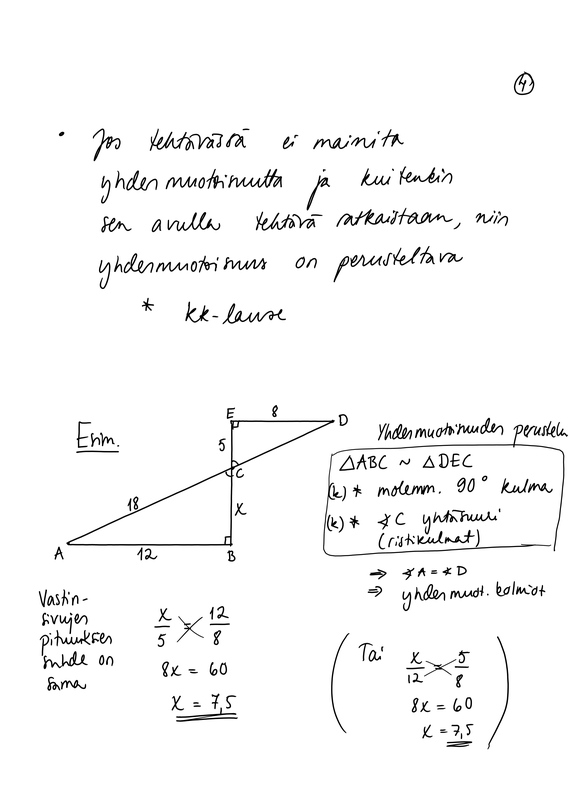 4.
• Jos tehtävässä ei mainita
yhdenmuotoisuutta ja kuitenkin
sen avulla tehtävä ratkaistaan, niin
yhdenmuotoisuus on perusteltava
* kk-lause
Esim.
E 8 D
5
C
18
x
A 12 B
Yhdenmuotoisuuden perustelu
△ABC ~ △DEC
(k) * molemm. 90° kulma
(k) * ∢C yhtäsuuri
(ristikulmat)
⇒ ∢A = ∢D
⇒ yhdenmuot. kolmiot
Vastin-
sivujen
pituuksien
suhde on
sama
x/5 = 12/8
8x = 60
x = 7,5
Tai
x/12 = 5/8
8x = 60
x = 7,5